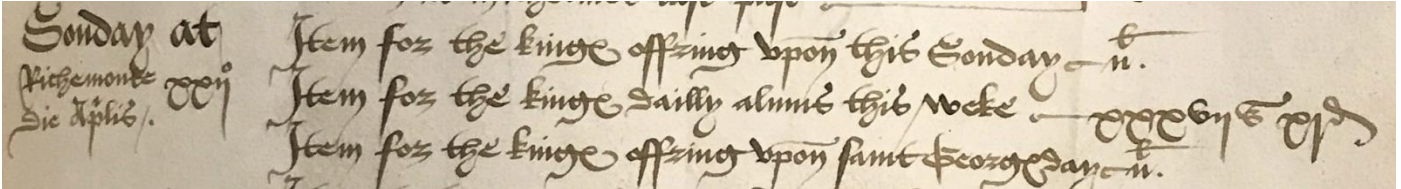 Sonday at
Richemonte xxijº
die Aplis.
Item for the kinge offring vpon this Sonday
Item for the kinge dailly almus this weke xxxvijs xjd
Item for the kinge offring vpon saint George day